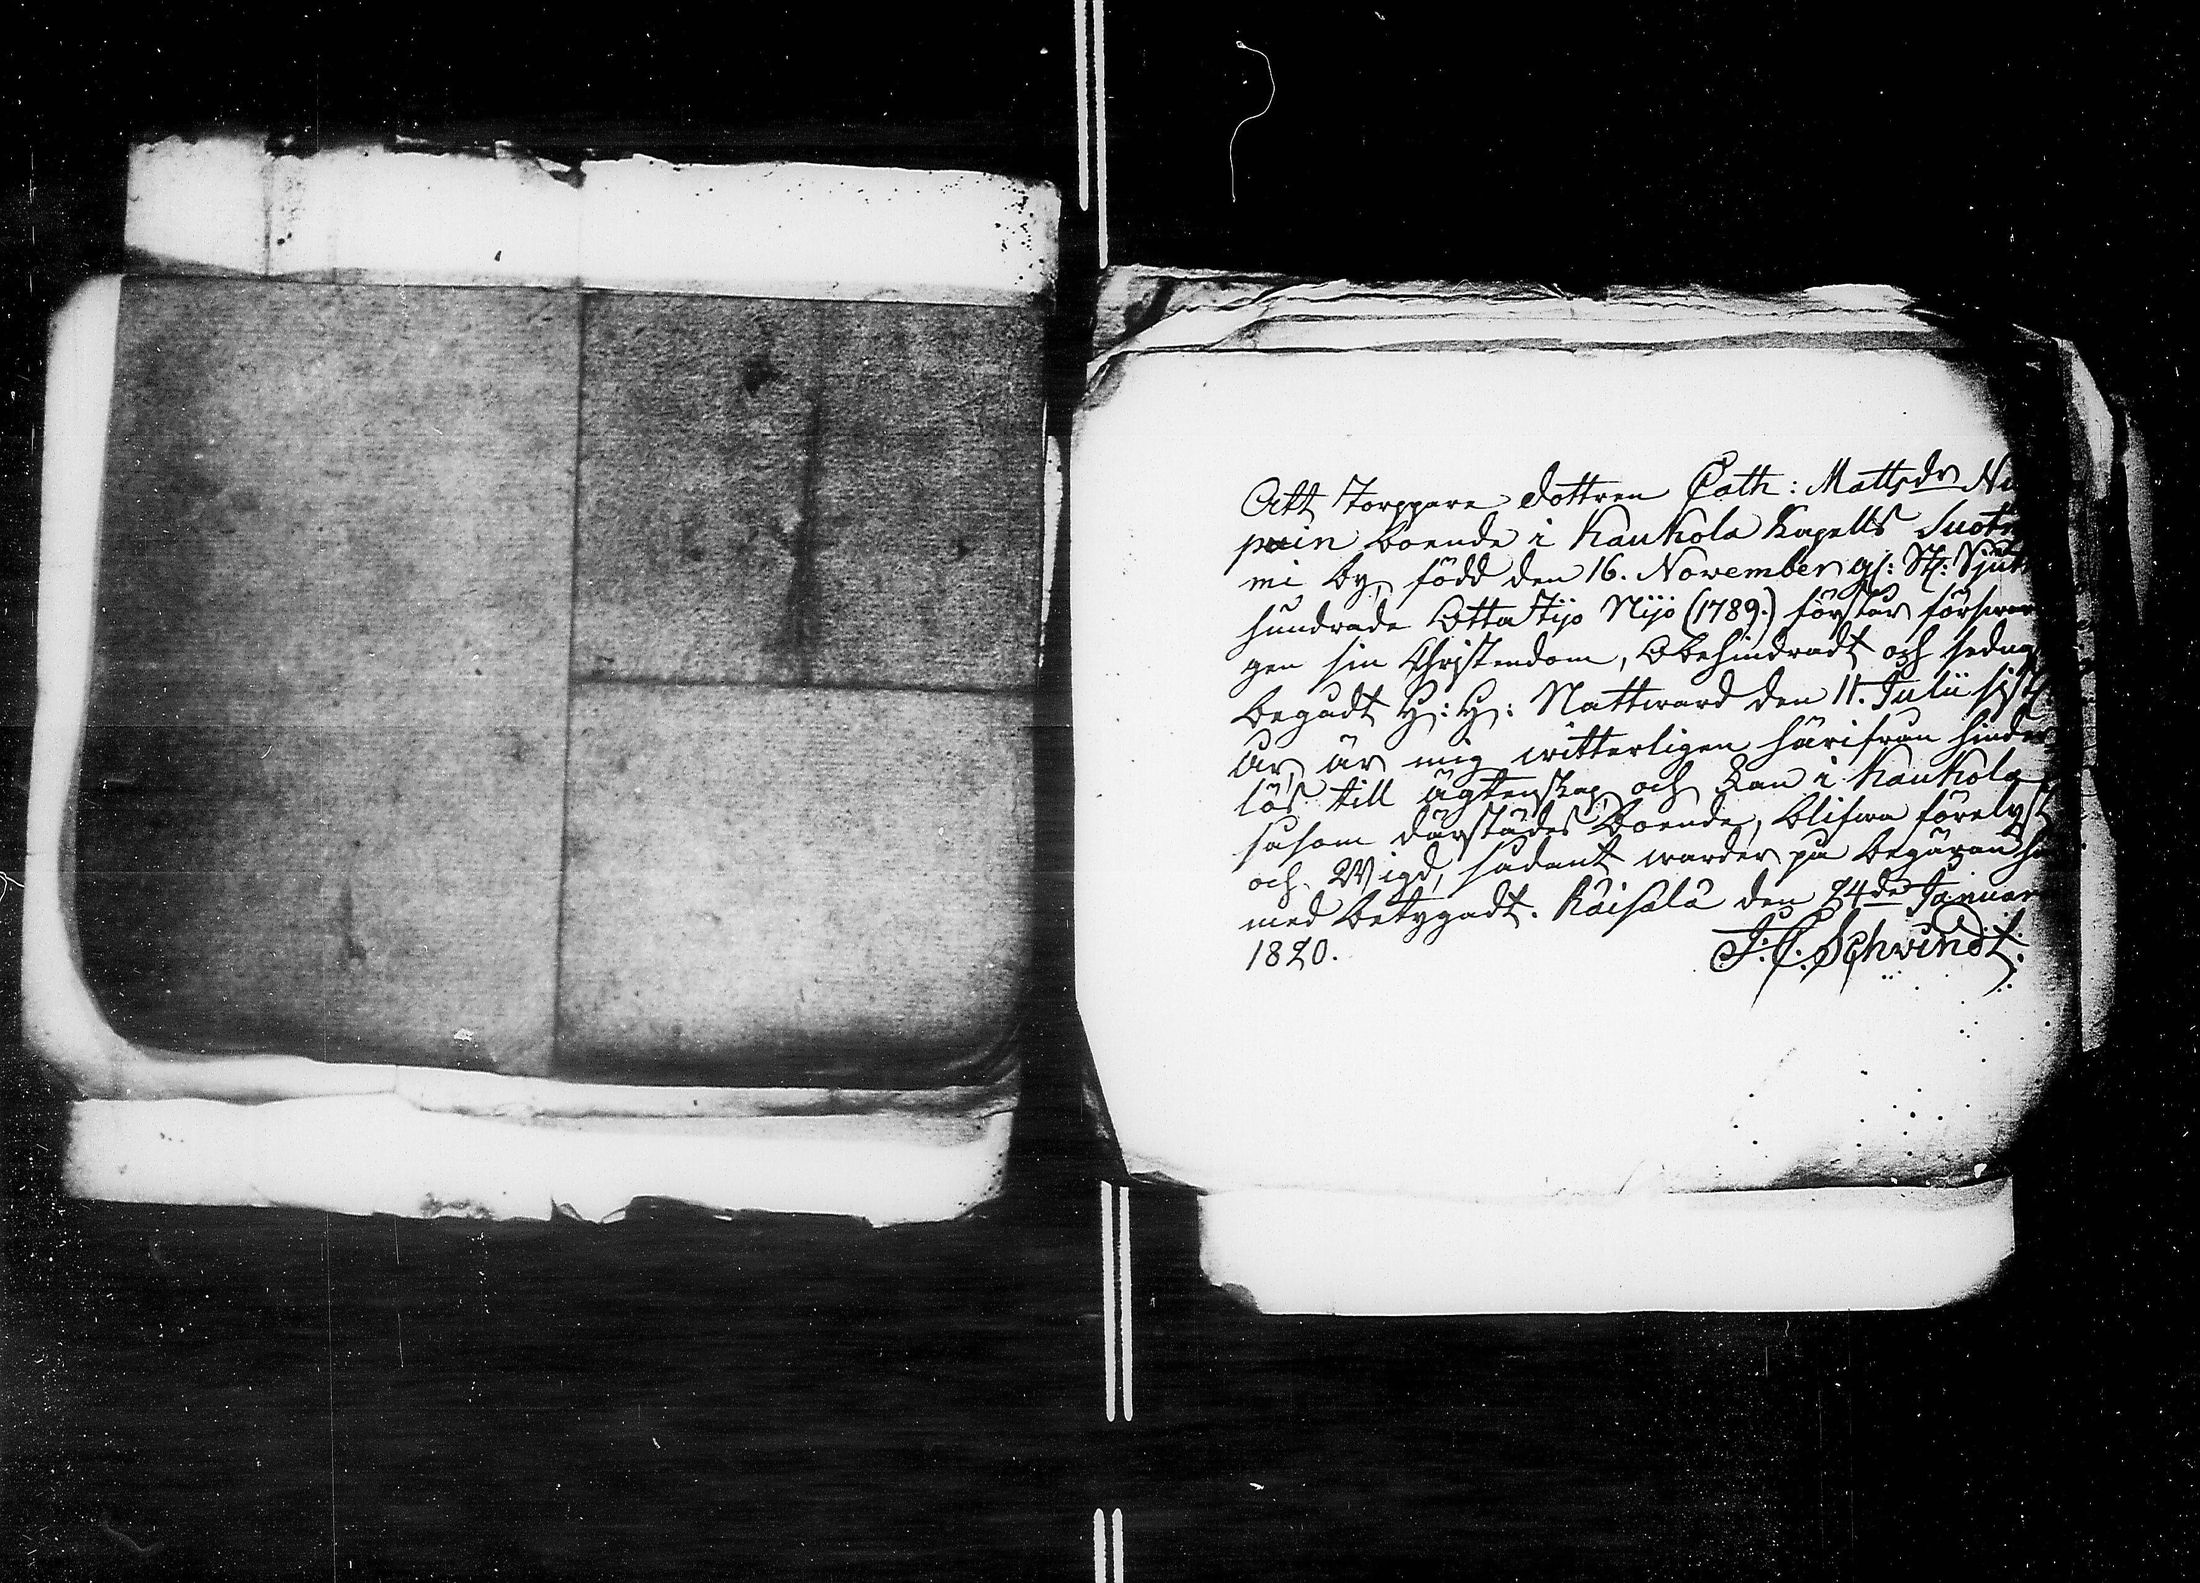 Att Torppare dottren Cath: Mattsdr Nu
pain boende i Kaukola Kapells Suot
mi by, född den 16. November gl: St: Sjut
hundrade Otta Tijo Nijo (1789.) förstår förswar
gen sin Christendom, obehindradt och sednast
begådt H: H: Nattward den 11. Julii sistl
år, är mig witterligen härifrån hinder
lös till ägtenskap och kan i Kaukola
såsom därstädes boende, blifwa förelyst
och Wigd, sådant warder på begäran hä
med betygadt. Räisälä den 24de Januar
1820.
J: C: Schwindt.